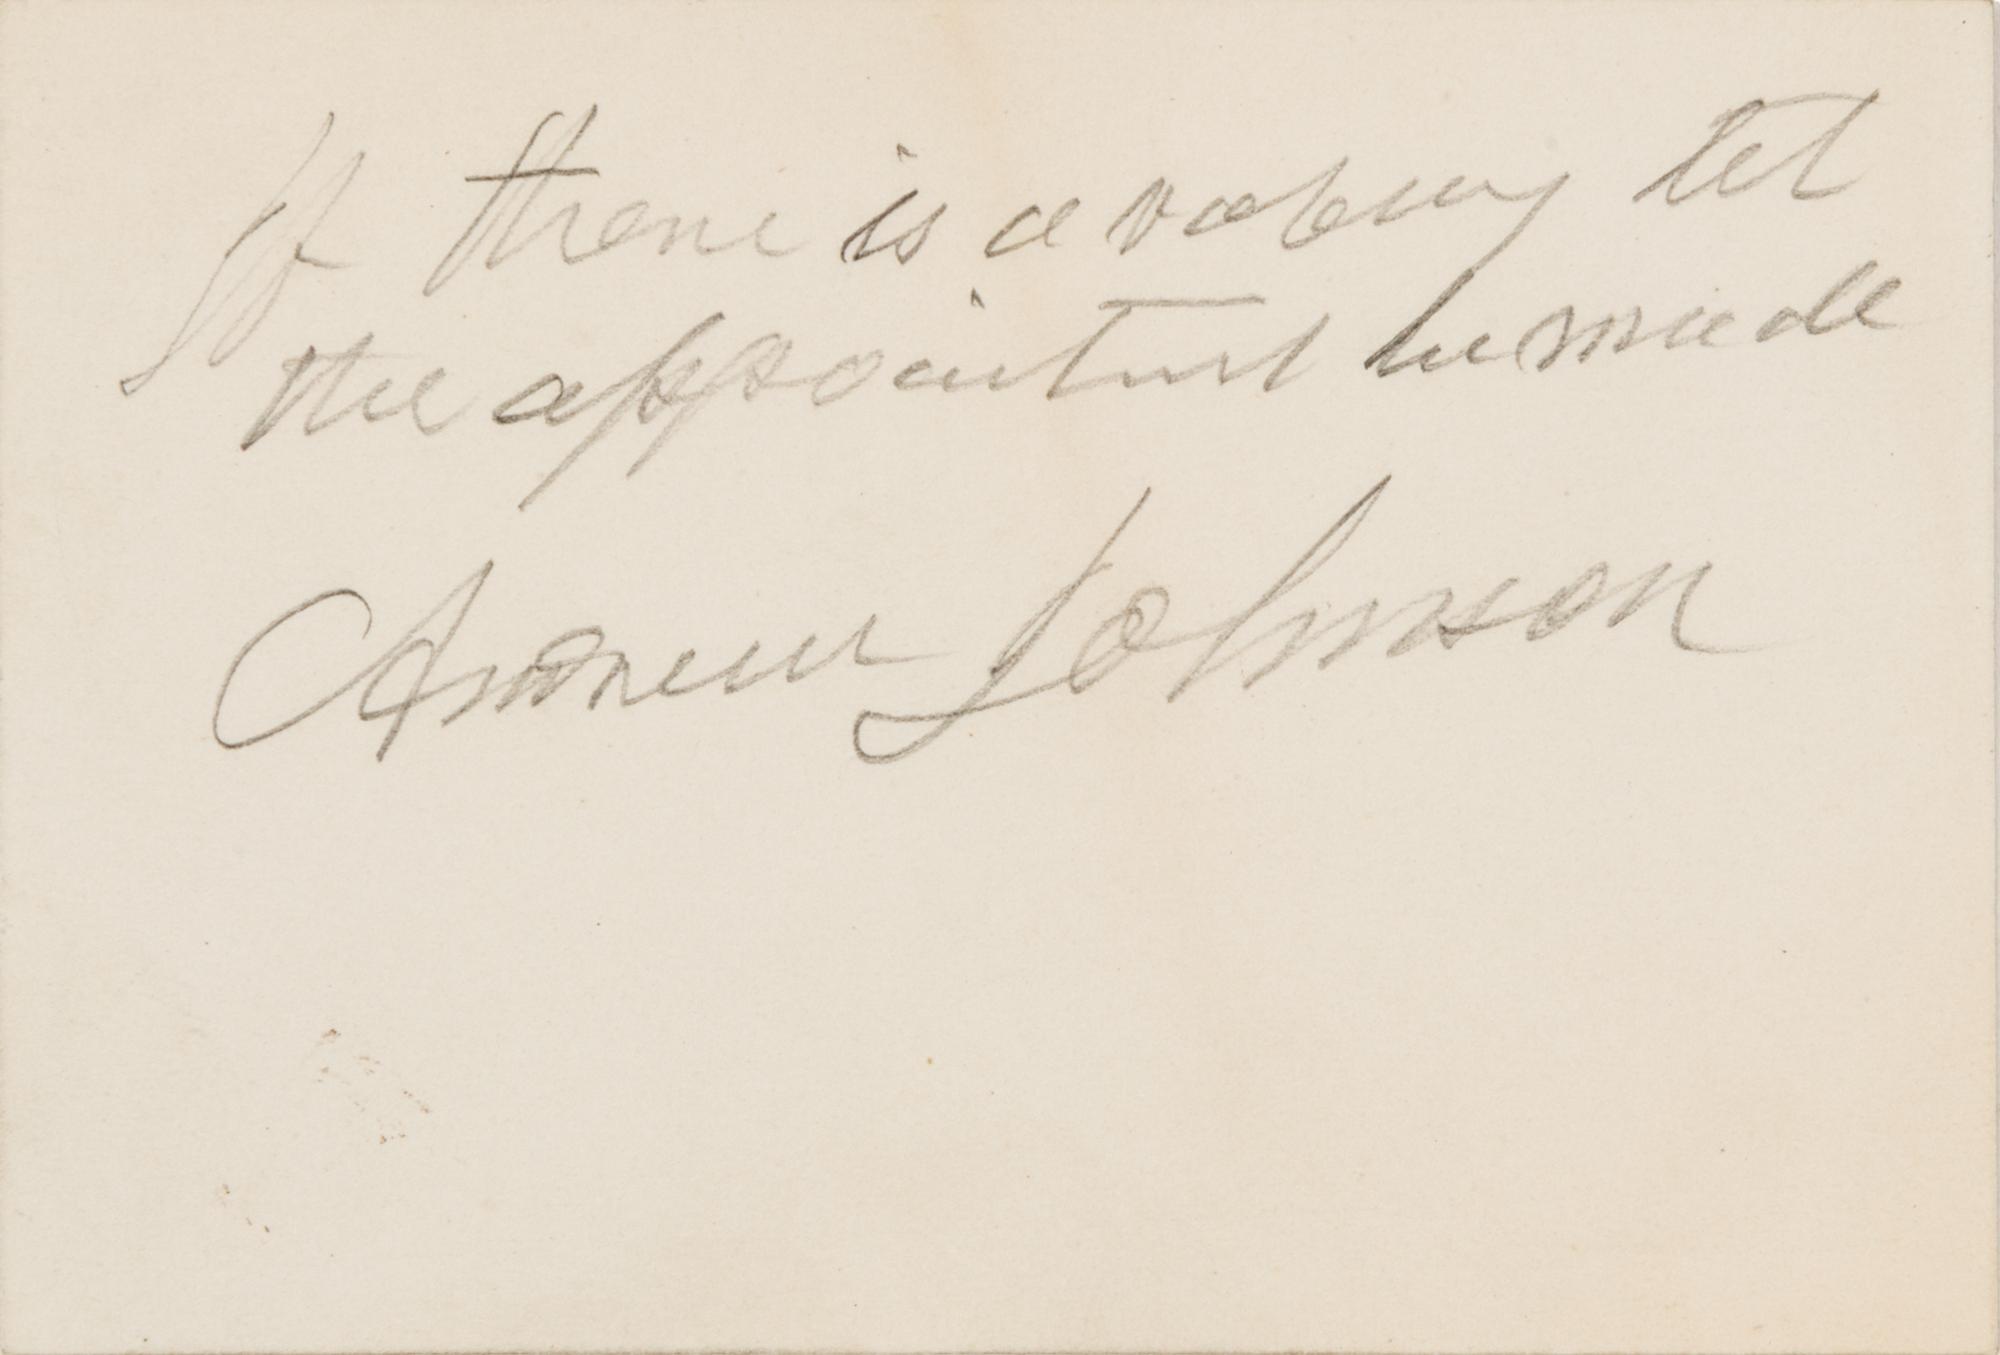 If there is a vacancy let
the appointment be made
Andrew Johnson